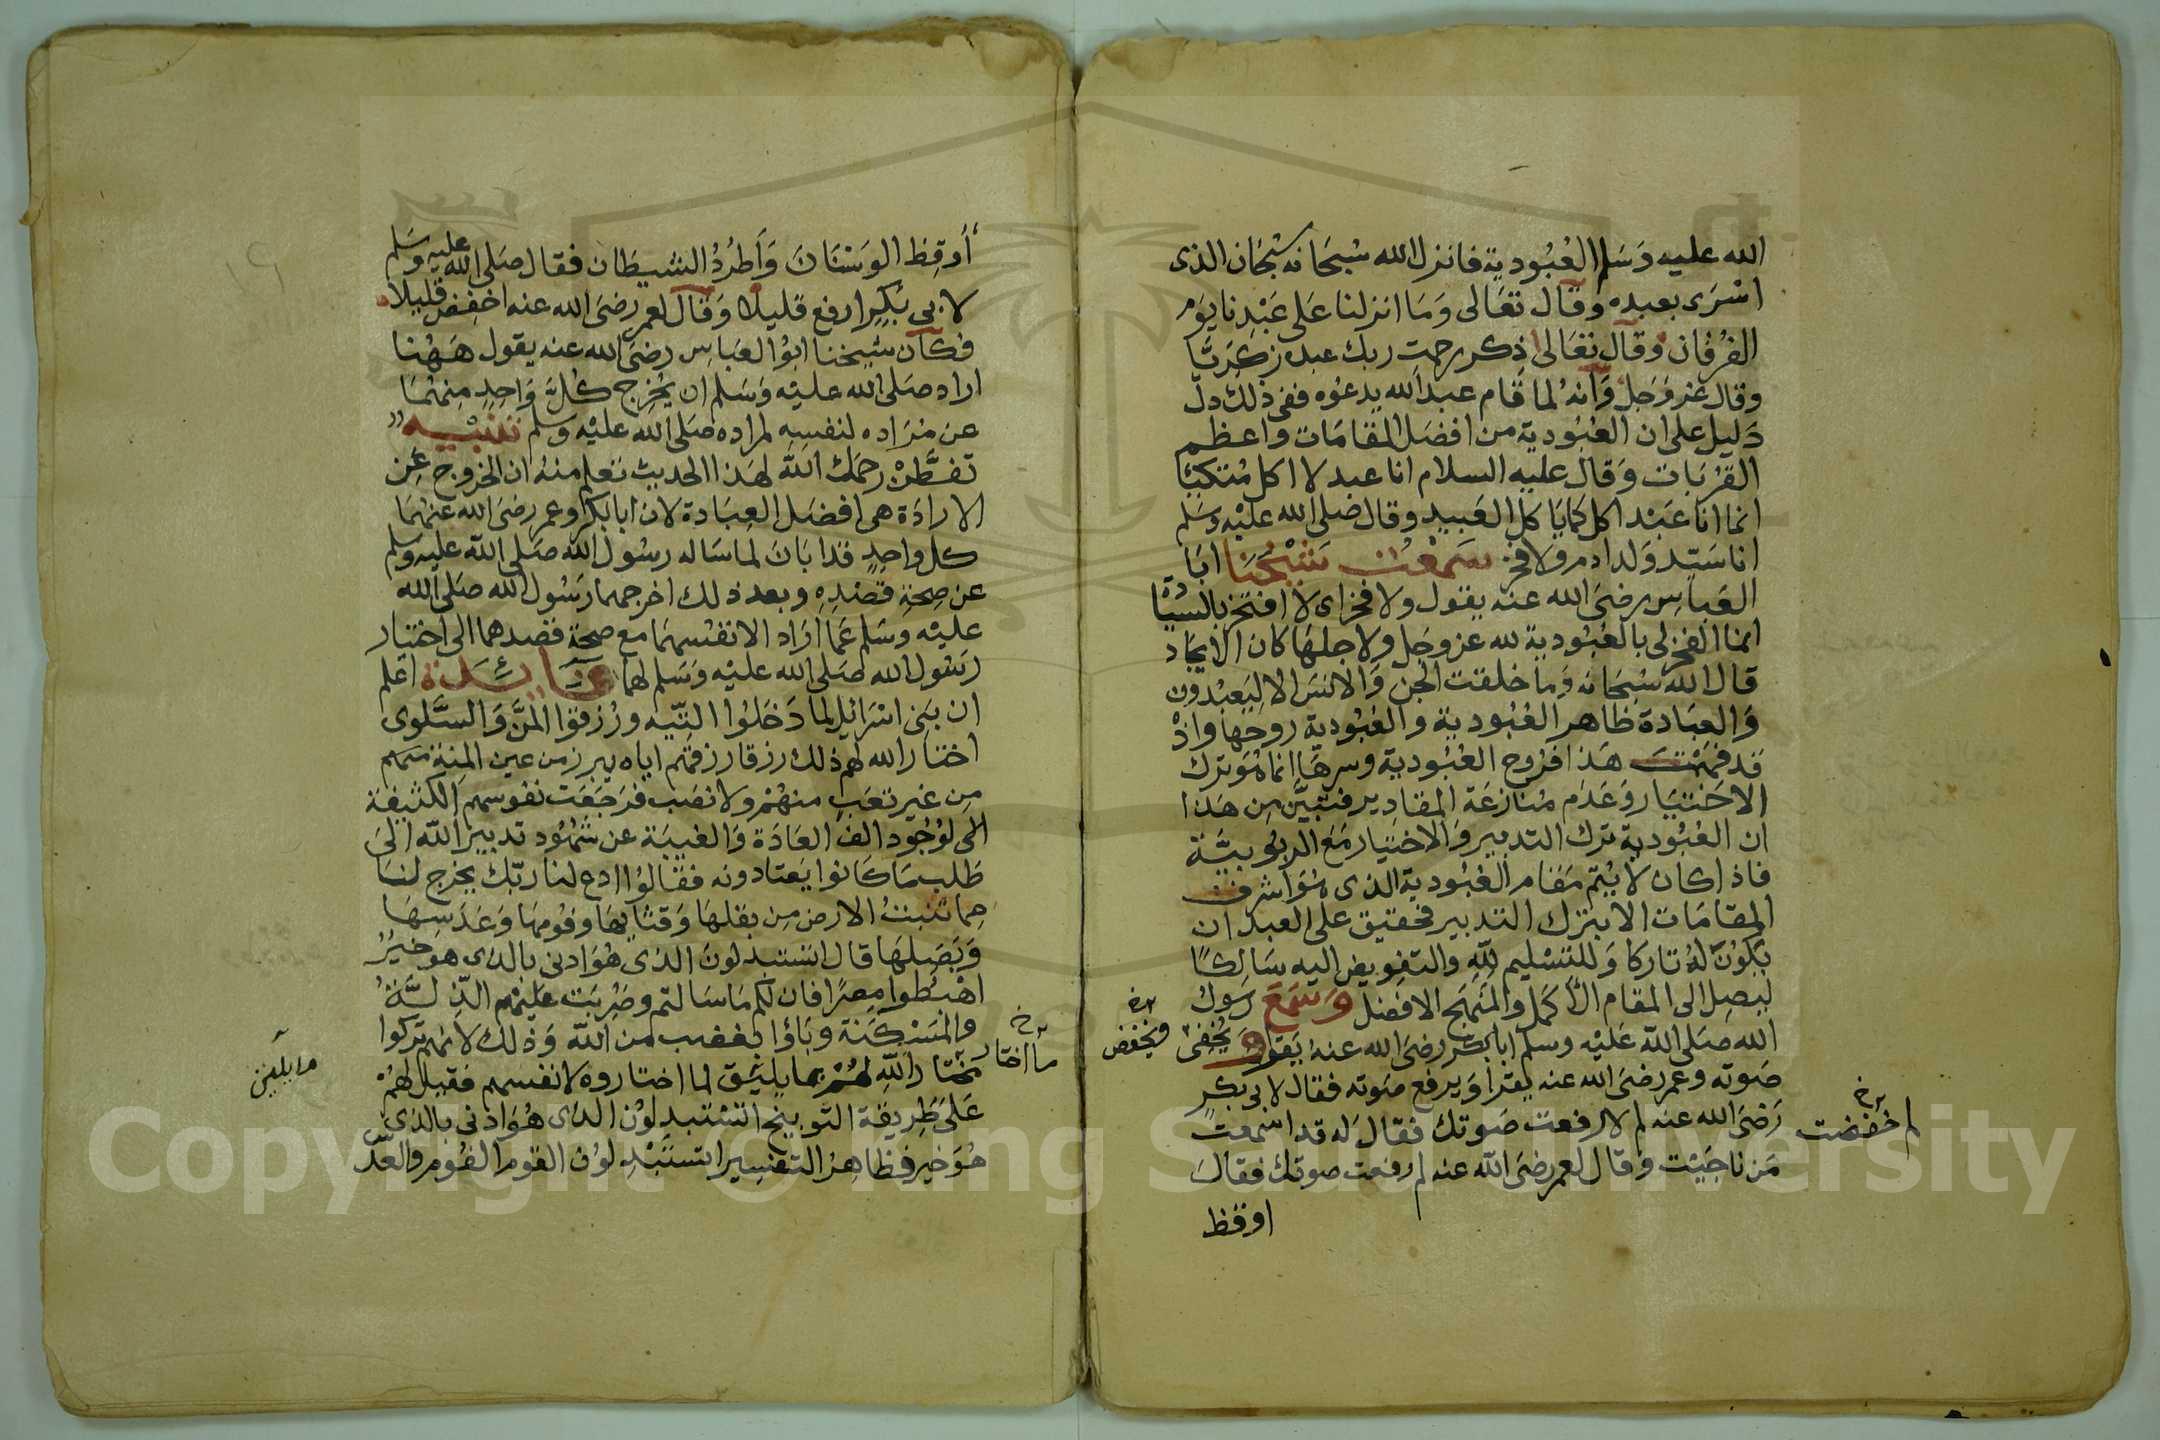 الله عليه وسلم العبودية فانزل الله سبحانه سبحان الذى
اسرى بعبده وقال تعالى وما انزلنا على عبدنا يوم
الفرقان وقال تعالى ذكر رحمت ربك عبده زكريا
وقال عز وجل وانه لما قام عبد الله يدعوه ففى ذلك دل
دليل على ان العبودية من افضل المقامات واعظم
القربات وقال عليه السلام انا عبد لا اكل متكئا
انما انا عبد اكل كما ياكل العبيد وقال صلى الله عليه وسلم
انا سيد ولد ادم ولا فخر سمعت شيخنا ابا
العباس رضى الله عنه يقول ولا فخر اى لا افتخر بالسيادة
انما الفخر لى بالعبودية لله عز وجل ولاجلها كان الايجاد
قال الله سبحانه وما خلقت الجن والانس الا ليعبدون
والعبادة ظاهر العبودية والعبودية روحها واذ
قد فهمت هذا فروح العبودية وسرها انما هو ترك
الاختيار وعدم منازعة المقادير فتبين من هذا
ان العبودية ترك التدبير والاختيار مع الربوبية
فاذا كان لا يتم مقام العبودية الذى هو اشرف
المقامات الا بترك التدبير فحقيق على العبد ان
يكون له تاركا وللتسليم لله والتفويض اليه سالكا
ليصل الى المقام الاكمل والمنهج الافضل وسمع رسول
الله صلى الله عليه وسلم ابا بكر رضى الله عنه يقرا ويخفى
ويخفض
صوته وعمر رضى الله عنه يقرا ويرفع صوته فقال لابى بكر
رضى الله عنه لم لا رفعت صوتك فقال له قد اسمعت
لم خفضت
من ناجيت وقال لعمر رضى الله عنه لم رفعت صوتك فقال
اوقظ
أوقظ الوسنان وأطرد الشيطان فقال صلى الله عليه وسلم
لابى بكر ارفع قليلا وقال لعمر رضى الله عنه اخفض قليلا
فكان شيخنا ابو العباس رضى الله عنه يقول ههنا
اراد صلى الله عليه وسلم ان يخرج كل واحد منهما
عن مراده لنفسه لمراده صلى الله عليه وسلم تنبيه
تفطن رحمك الله لهذا الحديث تعلم منه ان الخروج عن
الارادة هى افضل العبادة لان ابا بكر وعمر رضى الله عنهما
كل واحد قد ابان لما ساله رسول الله صلى الله عليه وسلم
عن صحة قصده وبعد ذلك اخرجهما رسول الله صلى الله
عليه وسلم عما أراد الانفسهما مع صحة قصدهما الى اختيار
رسول الله صلى الله عليه وسلم لهما فائدة اعلم
ان بنى اسرائيل لما دخلوا التيه ورزقوا المن والسلوى
اختار الله لهم ذلك رزقا رزقهم اياه يبرز من عين المنة منهم
من غير تعب منهم ولا نصب فرجعت نفوسهم الكثيفة
الى لوجود الف العادة والغيبة عن شهود تدبير الله الى
طلب ما كانوا يعتادونه فقالوا ادع لنا ربك يخرج لنا
مما تنبت الارض من بقلها وقثايها وفومها وعدسها
وبصلها قال اتستبدلون الذى هو ادنى بالذى هو خير
اهبطوا مصرا فان لكم ما سالتم وضربت عليهم الذلة
والمسكنة وباؤا بغضب من الله وذلك لانهم تركوا
ما اختار
مختار الله لهم ما يليق لما اختاروه لانفسهم فقيل لهم
ما يليق
على طريقة التوبيخ اتستبدلون الذى هو ادنى بالذى
هو خير فظاهر التفسير اتستبدلون القوم الفوم والعد